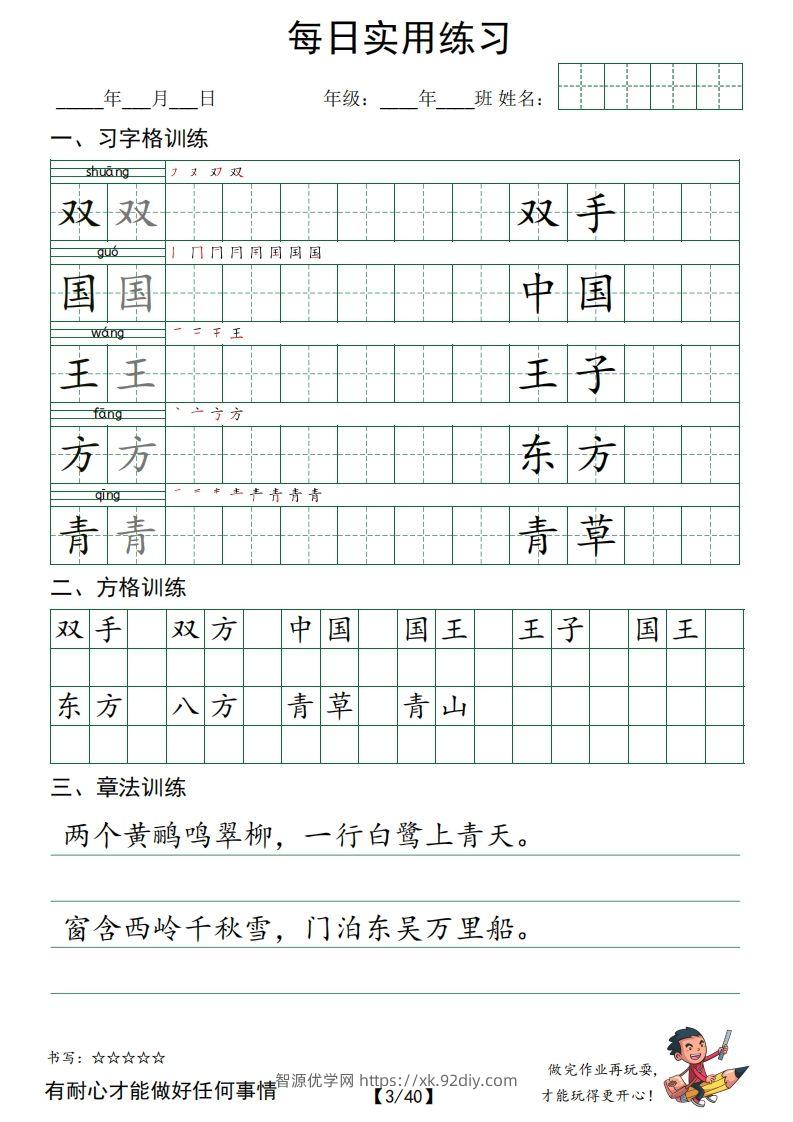 每日实用练习
_____年___月___日 年级：____年____班 姓名：
一、习字格训练
shuāng
双 双 双 手
guó
国 国 中 国
wáng
王 王 王 子
fāng
方 方 东 方
qīng
青 青 青 草
二、方格训练
双手 双方 中国 国王 王子 国王
东方 八方 青草 青山
三、章法训练
两个黄鹂鸣翠柳，一行白鹭上青天。
窗含西岭千秋雪，门泊东吴万里船。
书写：☆☆☆☆☆
有耐心才能做好任何事情
智源优学网 https://xk.92diy.com
【3/40】
做完作业再玩耍，
才能玩得更开心！